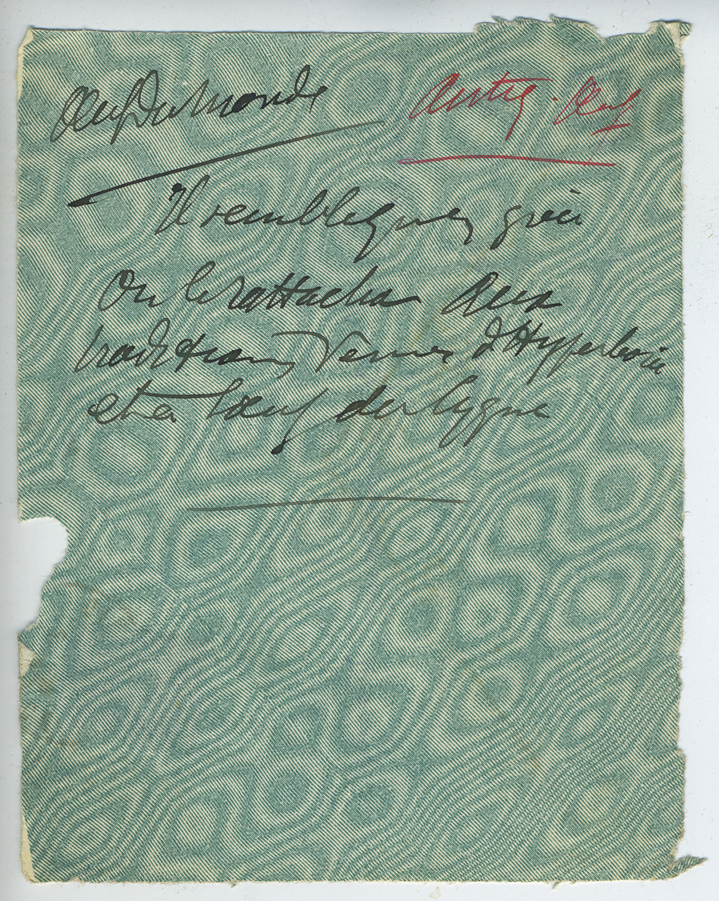 Œuf Du Monde
Antiq. Œuf
Il semble qu'en grèce
on le rattacha aux
traditions venues d'Hyperborée
et à l'œuf du Cygne